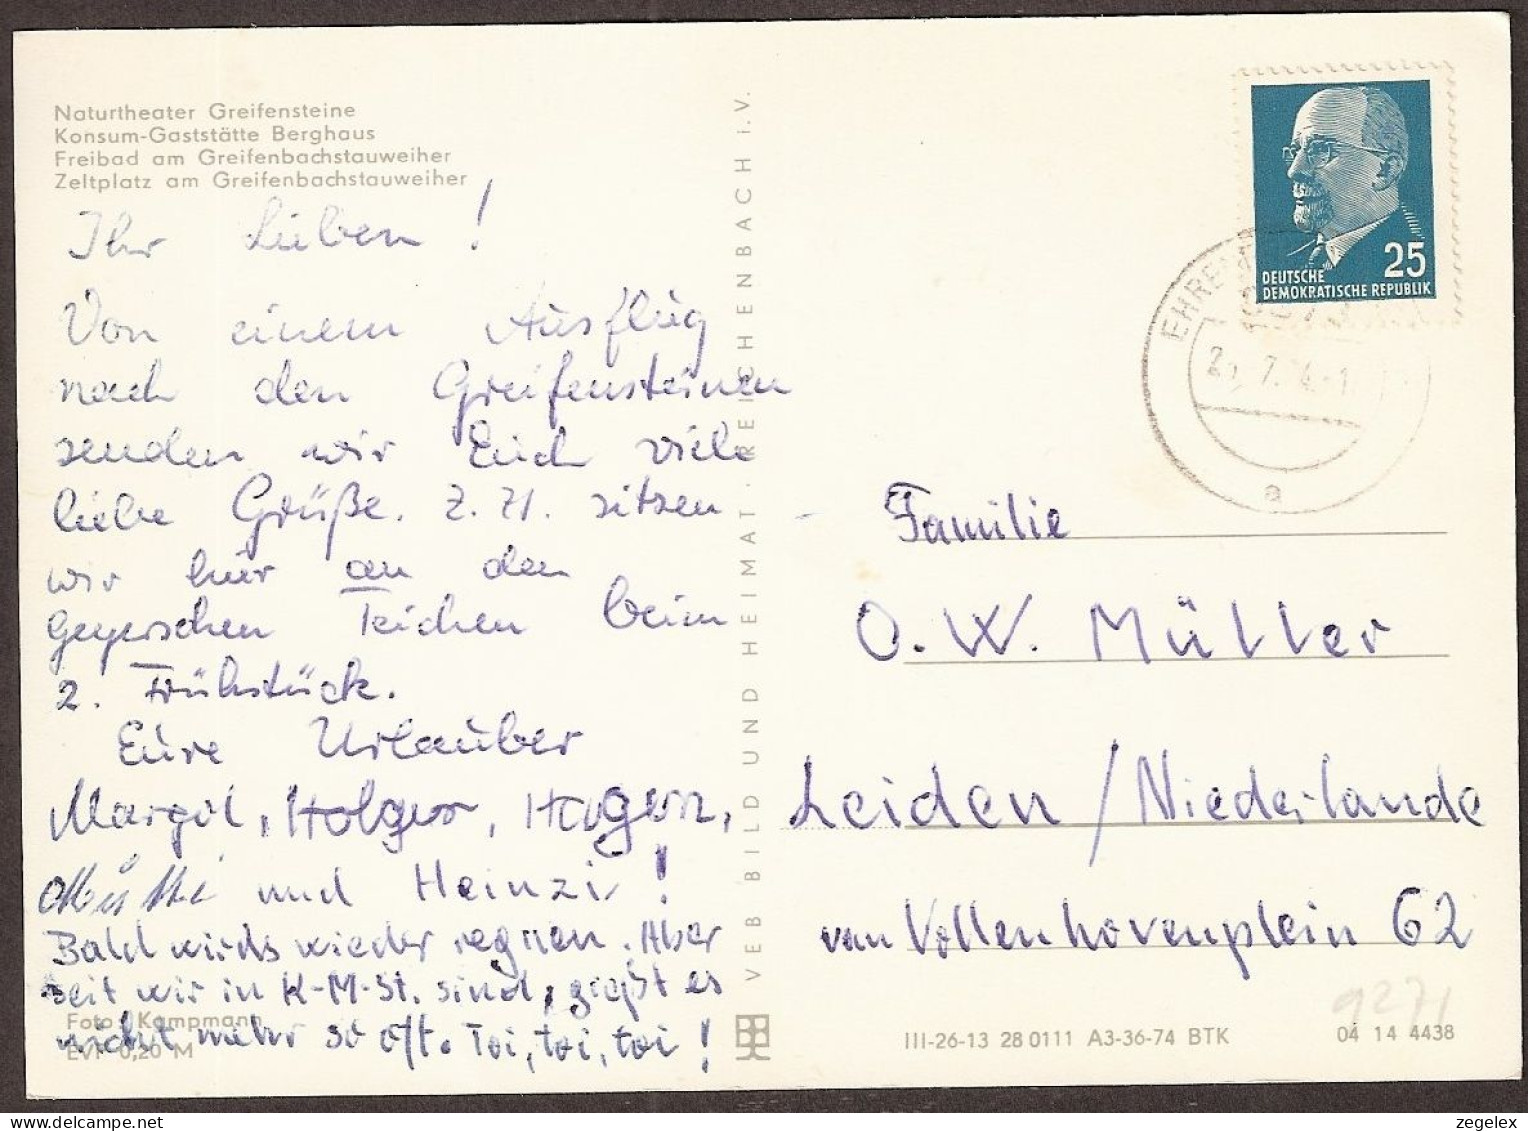 Naturtheater Greifensteine
Konsum-Gaststätte Berghaus
Freibad am Greifenbachstauweiher
Zeltplatz am Greifenbachstauweiher
Ihr Lieben!
Von einem Ausflug
nach den Greifensteinen
senden wir Euch viele
liebe Grüße. Z. Zt. sitzen
wir hier an den
Geyerschen Teichen beim
2. Frühstück.
Eure Urlauber
Margit, Holger, Hagen,
Mutti und Heinzi!
Bald wirds wieder regnen. Aber
seit wir in K-M-St. sind, gießt es
nicht mehr so oft. Toi, toi, toi!
Foto: Kampmann
EVP 0,20 M
VEB BILD UND HEIMAT · REICHENBACH i.V.
25
DEUTSCHE
DEMOKRATISCHE REPUBLIK
a
Familie
O. W. Müller
Leiden / Niederlande
van Vollenhovenplein 62
III-26-13 28 0111 A3-36-74 BTK
04 14 4438
zegelex
www.delcampe.net